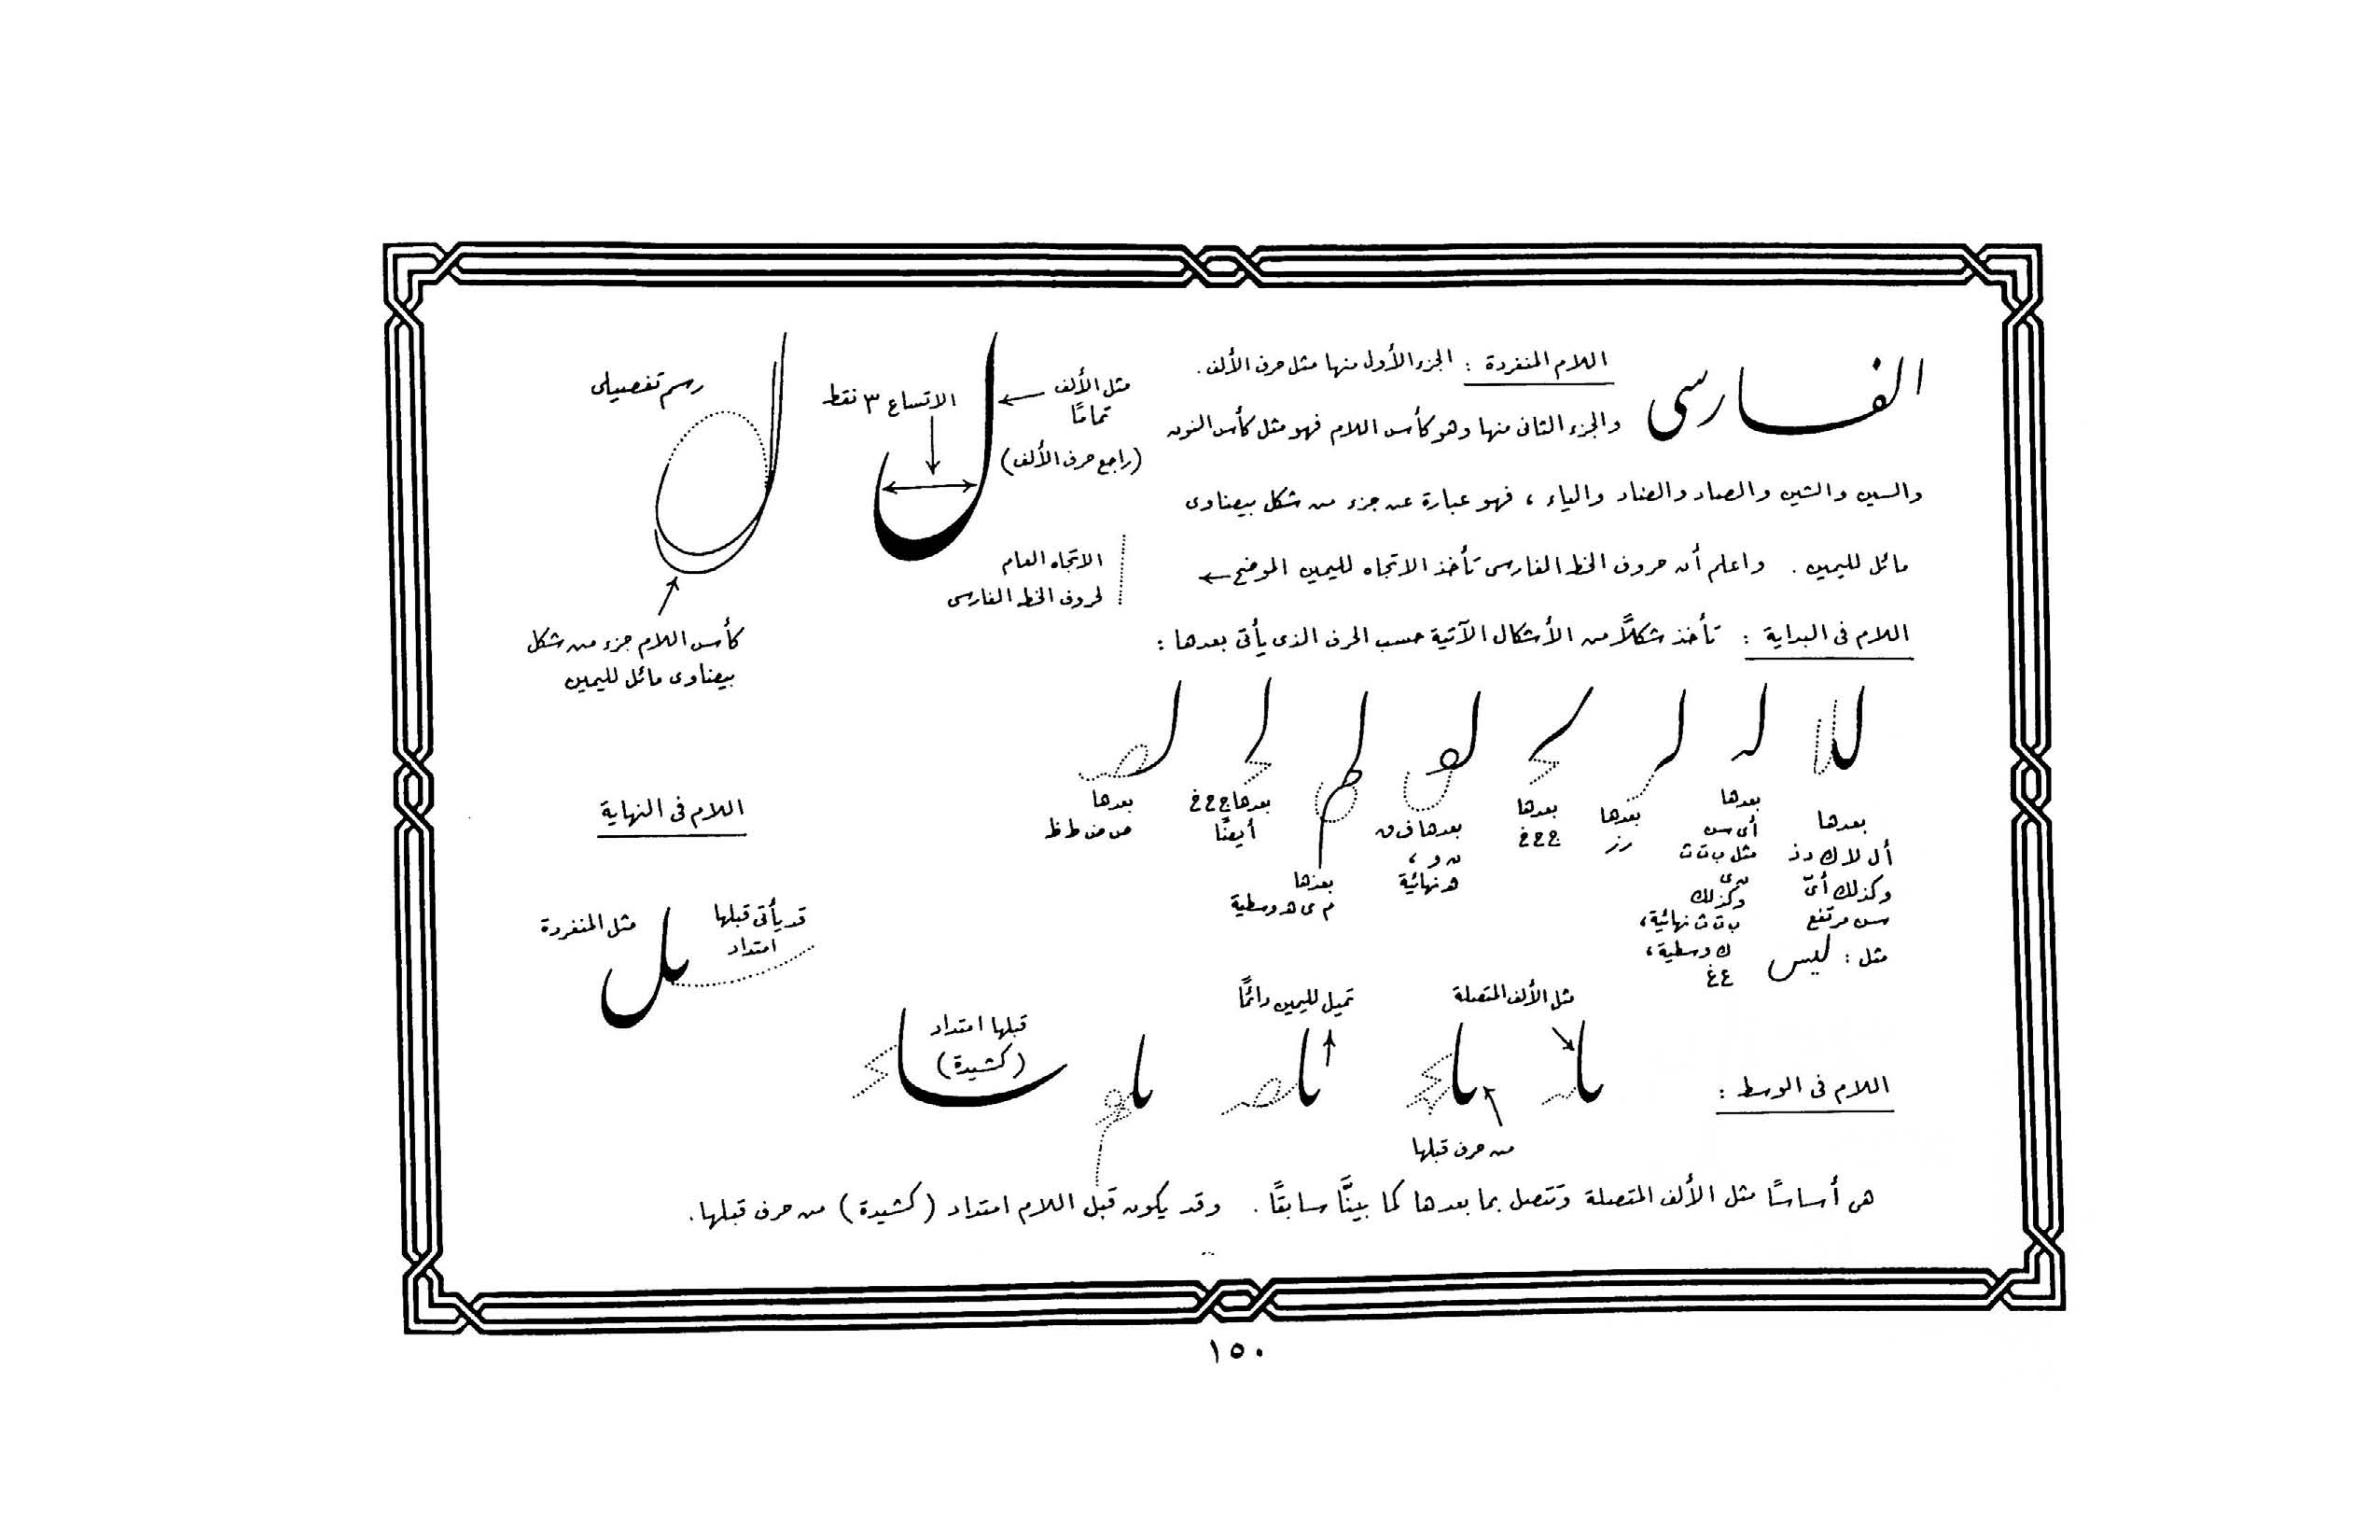 الفارسى
اللام المنفردة : الجزء الأول منها مثل حرف الألف.
والجزء الثانى منها وهو كأس اللام فهو مثل كأس النون
والسين والشين والصاد والضاد والياء ، فهو عبارة عن جزء من شكل بيضاوى
مائل لليمين . واعلم أن حروف الخط الفارسى تأخذ الاتجاه لليمين الموضح ←
الاتجاه العام
لحروف الخط الفارسى
مثل الألف
تمامًا
(راجع حرف الألف)
الاتساع ٣ نقط
ل
رسم تفصيلى
كأس اللام جزء من شكل
بيضاوى مائل لليمين
اللام فى البداية : تأخذ شكلاً من الأشكال الآتية حسب الحرف الذى يأتى بعدها :
بعدها
أ ل لا ك د ذ
وكذلك أىّ
سن مرتفع
مثل : ليس
بعدها
أى سن
مثل ب ت ث
ن ى
وكذلك
ب ت ث نهائية ،
ك وسطية ،
ع غ
بعدها
ر ز
بعدها
ج ح خ
بعدها ف ق
ن و ،
ه نهائية
بعدها
م ى ه وسطية
بعدها ج ح خ
أيضًا
بعدها
ص ض ط ظ
اللام فى النهاية
قد يأتى قبلها
امتداد
مثل المنفردة
اللام فى الوسط :
مثل الألف المتصلة
من حرف قبلها
تميل لليمين دائمًا
قبلها امتداد
(كشيدة)
هى أساسًا مثل الألف المتصلة وتتصل بما بعدها كما بينَّا سابقًا . وقد يكون قبل اللام امتداد (كشيدة) من حرف قبلها.
١٥٠